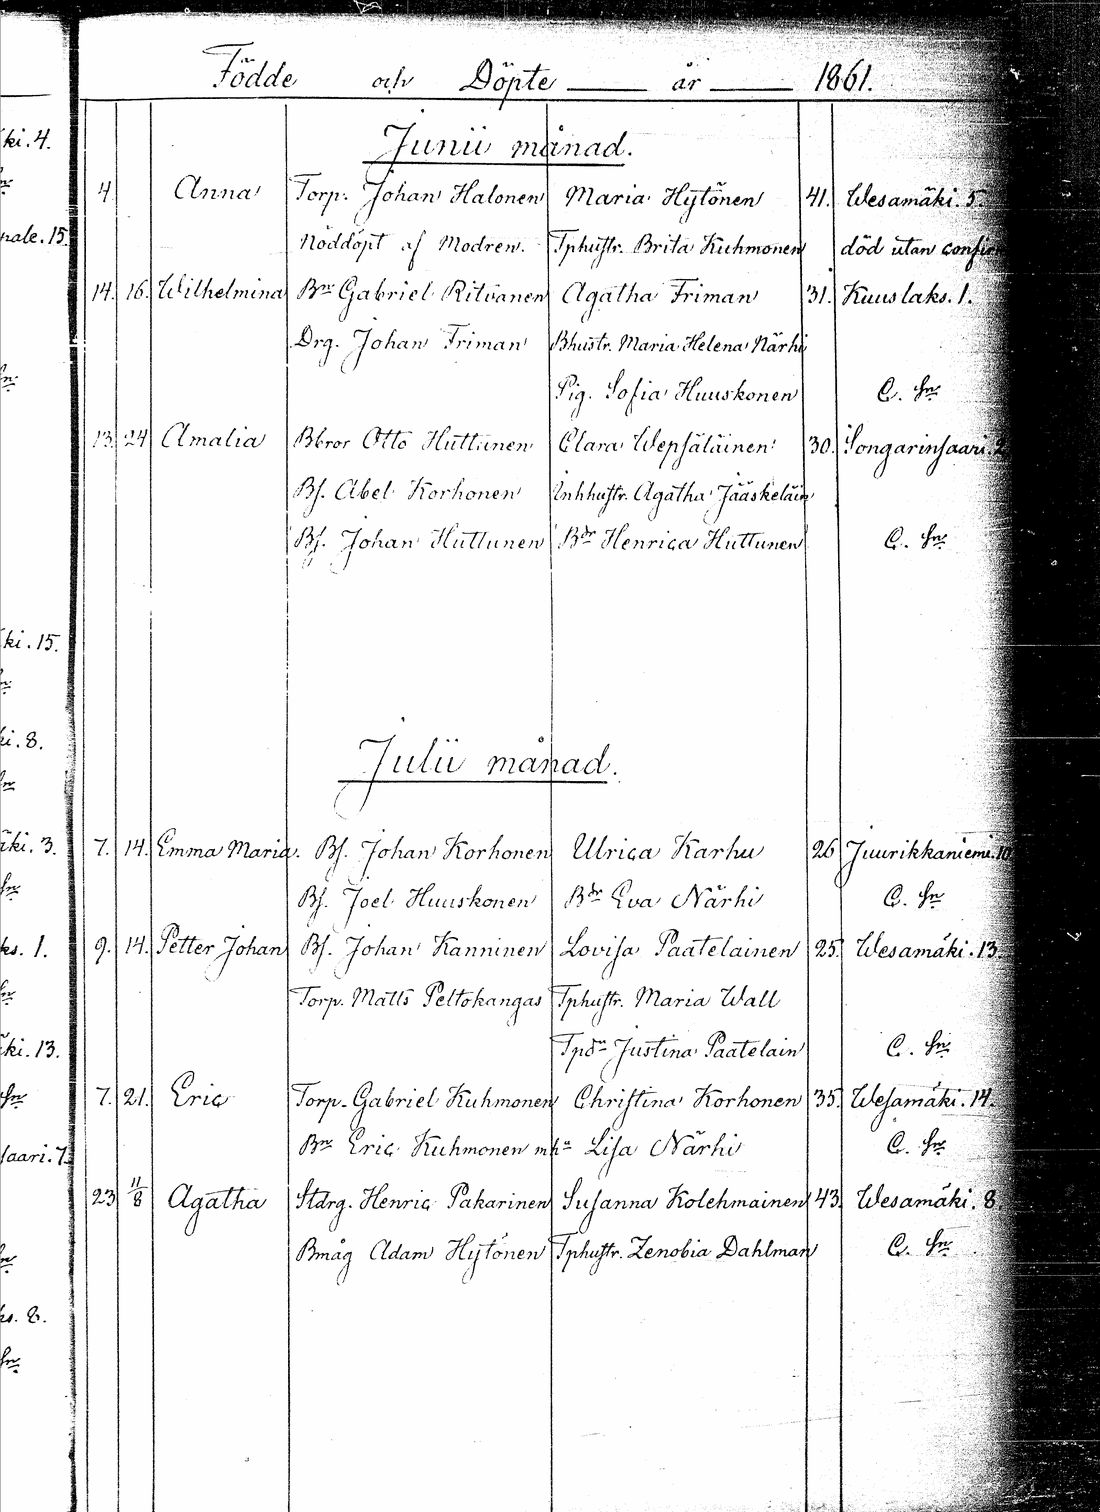 Födde och Döpte år 1861.
ki. 4.
Junii månad.
4. Anna Torp. Johan Halonen Maria Hytönen 41. Wesamäki. 5.
nale. 15. Nöddöpt af Modren. Tphustr. Brita Kuhmonen död utan
14. 16. Wilhelmina Bn Gabriel Ritvanen Agatha Friman 31. Kuuslaks. 1.
Drg. Johan Friman Bhustr. Maria Helena Närhi
Pig. Sofia Huuskonen C. Hn
13. 24 Amalia Bbror Otto Huttunen Clara Wepsäläinen 30. Songarinsaari. 2
Bs. Abel Korhonen Inhhustr. Agatha Jääskeläin
Bs. Johan Huttunen Bdr Henrica Huttunen C. Hn
ki. 15.
ki. 8. Julii månad.
äki. 3. 7. 14. Emma Maria. Bs. Johan Korhonen Ulrica Karhu 26 Juurikkaniemi. 10
Bs. Joel Huuskonen Bdr Eva Närhi C. Hn
ks. 1. 9. 14. Petter Johan Bs. Johan Kanninen Lovisa Paatelainen 25. Wesamäki. 13.
Torp. Matts Peltokangas Tphustr. Maria Wall
ki. 13. Tpdr Justina Paatelain C. Hn
7. 21. Eric Torp. Gabriel Kuhmonen Christina Korhonen 35. Wesamäki. 14.
saari. 7. Bn Eric Kuhmonen mha Lisa Närhi C. Hn
23 11/8 Agatha Stdrg. Henric Pakarinen Susanna Kolehmainen 43. Wesamäki. 8.
Bmåg Adam Hytönen Tphustr. Zenobia Dahlman C. Hn
ks. 8.